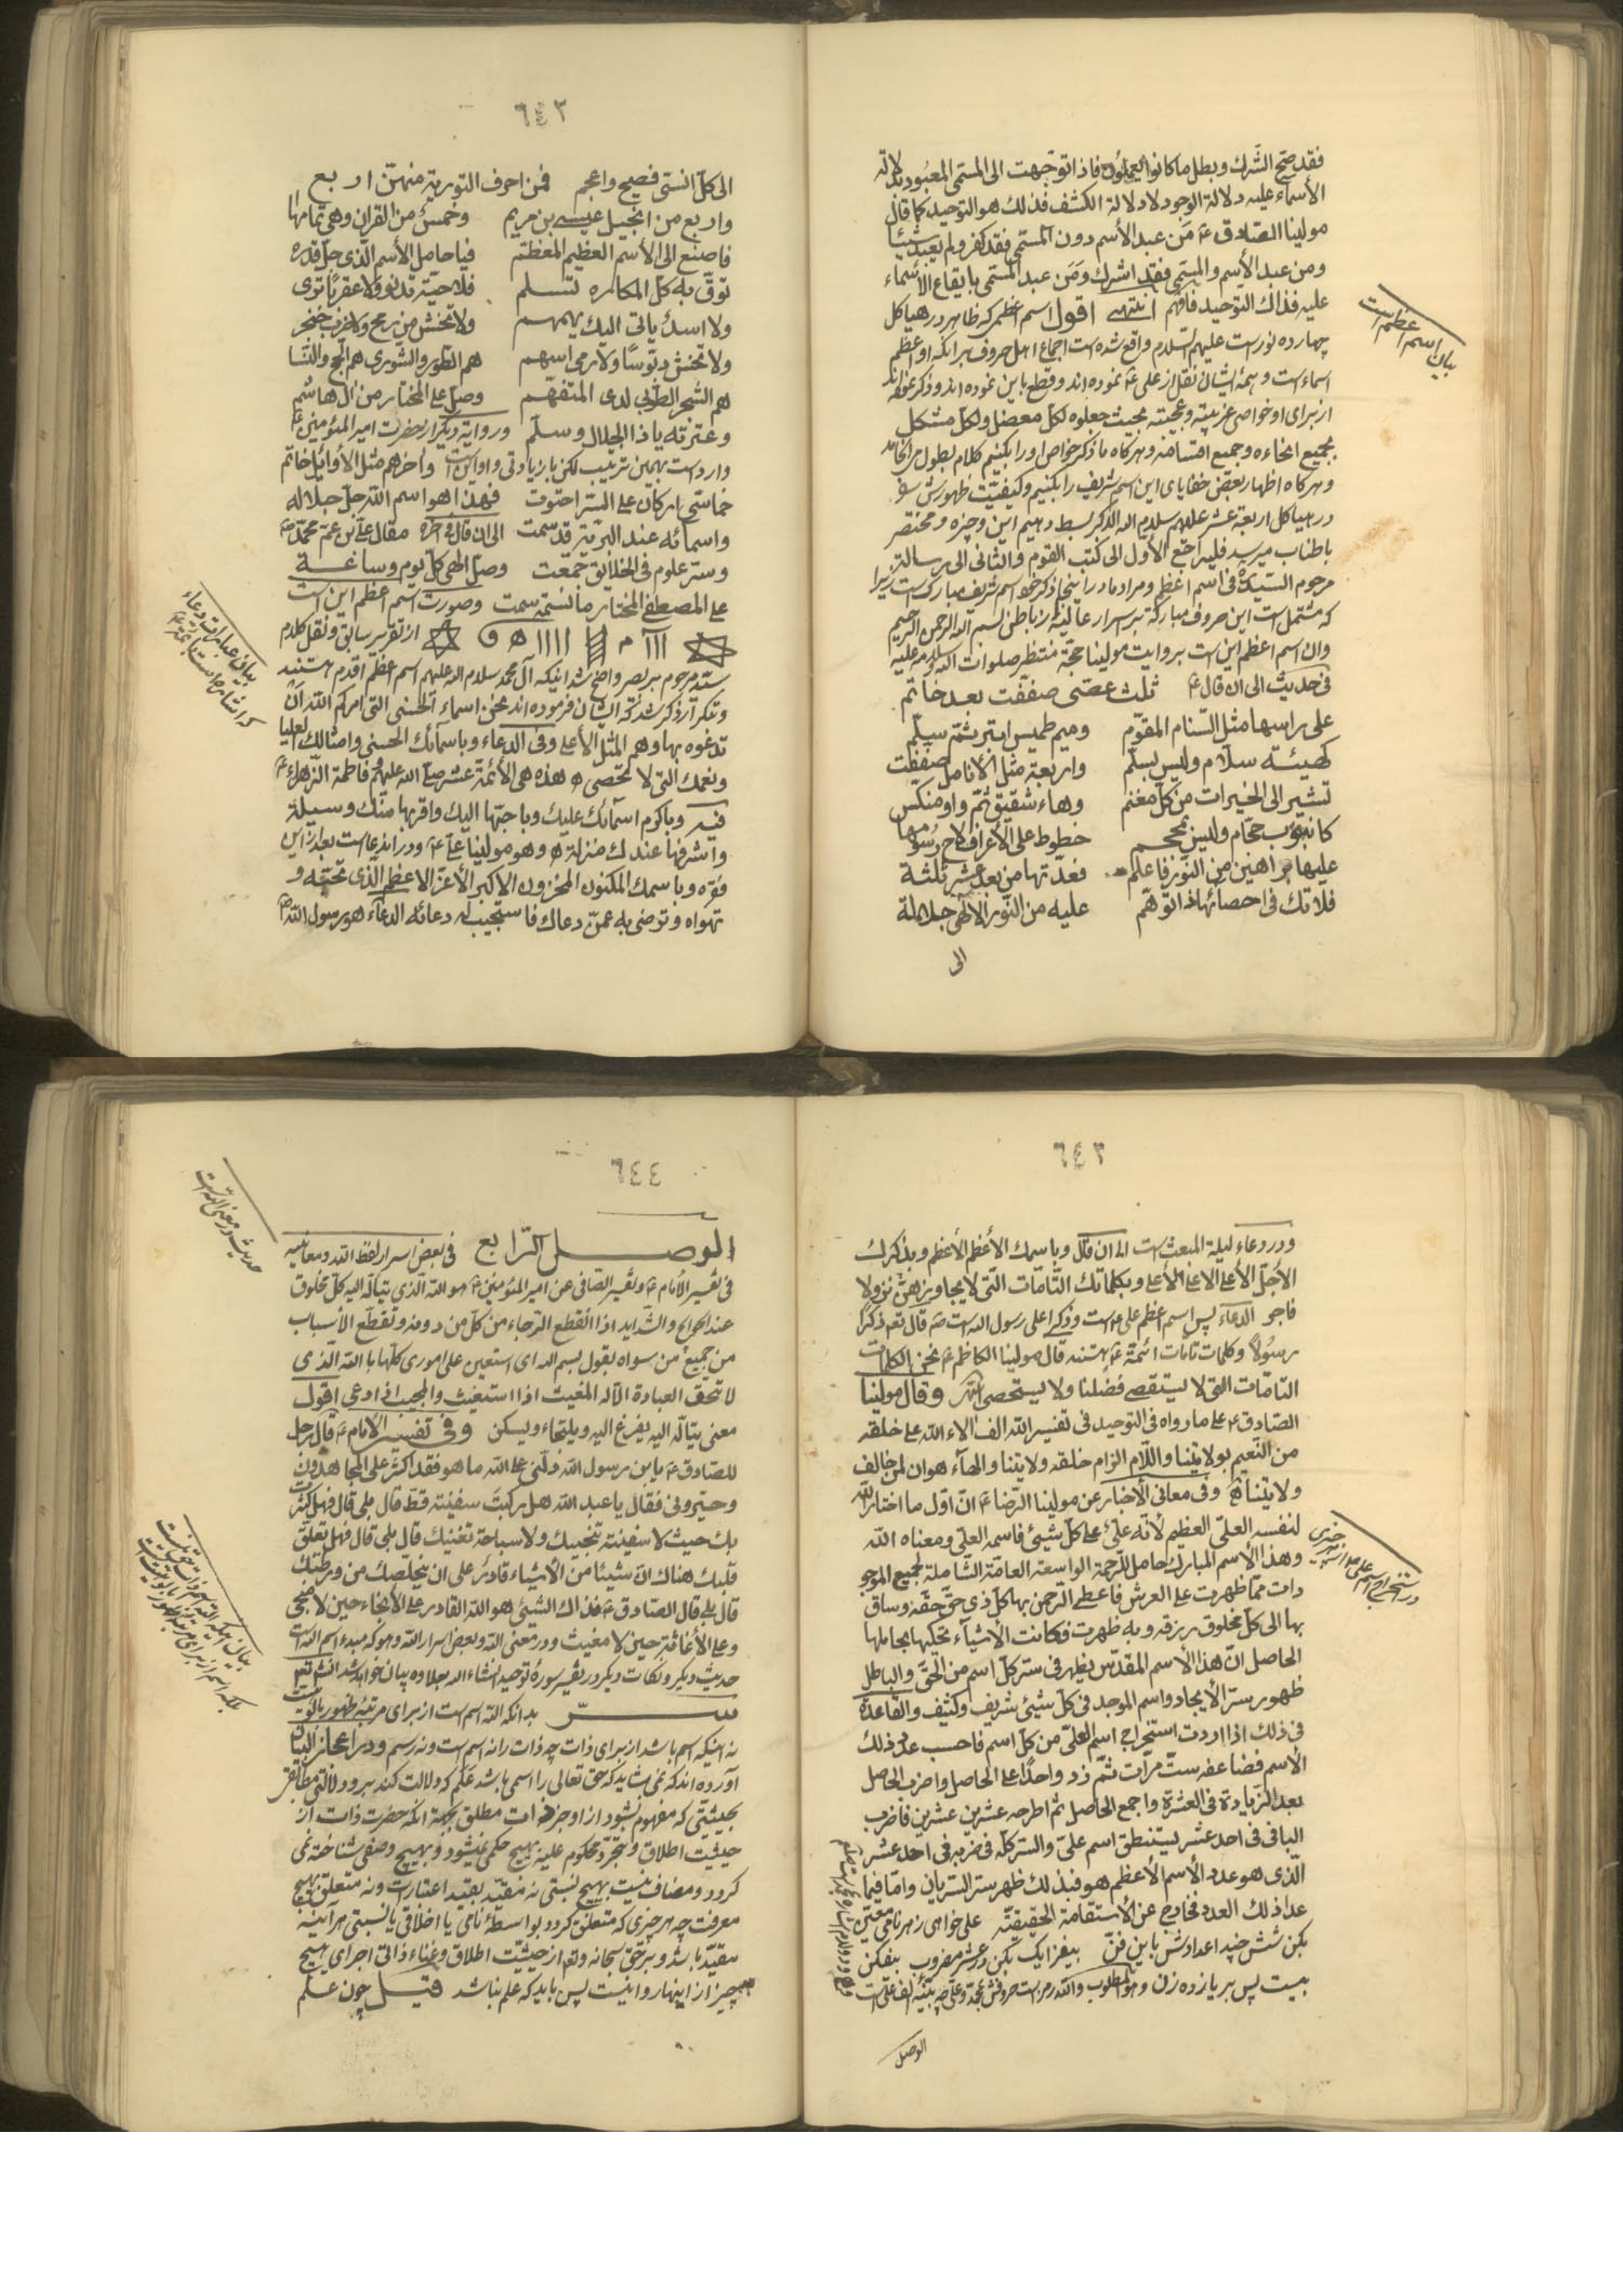 فقد صح الشرك وبطل ما كانوا يعملون فاذا توجهت الى المسمى المعبود بدلالة
الأسماء عليه دلالة الوجود لا دلالة الكشف فذلك هو التوحيد كما قال
مولينا الصادق ع مَن عبد الأسم دون المسمى فقد كفر ولم يعبد شيئا
ومن عبد الأسم والمسمى فقد اشرك ومَن عبد المسمى بايقاع الأسماء
عليه فذاك التوحيد فافهم انتهى اقول اسم اعظم كه ظاهر در هياكل
چهارده نور است عليهم السلام واقع شده است اجماع اهل حروف بر انكه او اعظم
اسماء است و همهٔ ايشان نقل از على ع نموده اند و قطع باين نموده اند و ذكر نموده اند
از براى او خواص غريبته و عجيبته بحيث جعلوه لكل معضل ولكل مشكل
بجميع انحاءه وجميع اقسامه و هركاه ما ذكر خواص او را بكنيم كلام بطول مى انجامد
و هركاه اظهار بعض خفاياى اين اسم شريف را بكنيم و كيفيت ظهورش
در هياكل اربعة عشر عليهم سلام الله الذكر بسط دهيم اين وجيزه و مختصر
باطناب ميرسد فليراجع الأول الى كتب القوم والثانى الى رسالة
مرحوم السيد فى اسم اعظم و مراد ما در اينجا ذكر خود اسم شريف مبارك است زيرا
كه مشتمل است اين حروف مباركة بر اسرار عاليه از باطن بسم الله الرحمن الرحيم
وان اسم اعظم اين است بروايت مولينا حجة منتظر صلوات الله وسلامه عليه
فى حديث الى ان قال ع ثلث عصى صففت بعد خاتم
على راسها مثل السنام المقوّم وميم طميس ابتر ثمّ سلّم
كهيئة سلّام وليس بسلّم واربعة مثل الأنامل صففت
تشير الى الخيرات من كل مغنم وهاء شقيق ثمّ واو منكس
كانبوب حجّام وليس بمحجم خطوط على الأعراف لاح رسومها
عليها براهين من النّور فاعلم فعدّتها من بعد عشر ثلثة
فلا تك فى احصائها ذا توهّم عليه من النّور الألهى جلاله
الى
بيان اسم اعظم است
٦٤٢
الى كل انسى فصيح واعجم فمن احرف التورية منهنّ اربع
واربع من انجيل عيسى بن مريم وخمس من القران وهى تمامها
فاصنع الى الأسم العظيم المعظم فيا حامل الأسم الذى جل قدره
توقّ به كل المكاره تسلم فلا حيّة تدنو ولا عقربًا ترى
ولا اسدٌ ياتى اليك يهمهم ولا تخش من رمح ولا ضرب خنجر
ولا تخش دبّوسًا ولا رمى اسهم هم الطور والشورى هم الحج والنسا
هم الشجر الطوبى لدى المتفهّم وصل على المختار من ال هاشم
وعترته يا ذا الجلال وسلّم و رواية ديكر از حضرت امير المؤمنين ع
وارد است بهمين ترتيب لكن بازيادتى و او اين است واخرهم مثل الأوايل خاتم
خماسىّ اركان على السّر احتوت فهذا هو اسم الله جلّ جلاله
واسمائه عند البريّة قد سمت الى ان قال فى اخره مقال علىّ بن عم محمّد ص
وسر علوم فى الخلائق جمعت وصل الهى كل يوم وساعة
على المصطفى المختار ما نسمة سمت و صورت اسم اعظم اين است
از تقرير سابق و نقل كلام
سيّد مرحوم بر بصر واضح شد اينكه آل محمد سلام الله عليهم اسم اعظم اقدم هستند
و تكرار ذكر شد كه ايشان فرموده اند نحن اسماء الحسنى التى امركم الله ان
تدعوه بها وهم المثل الأعلى وفى الدعاء وباسمائك الحسنى وامثالك العليا
ونعمك التى لا تحصى ه هذه هى الأئمة عشر صلى الله عليهم وفاطمة الزهراء ع
فيه وباكرم اسمائك عليك وباحبّها اليك واقربها منك وسيلة
واشرفها عندك منزلة ه وهو مولينا على ع و در اندعاست بعد از اين
فقره وباسمك المكنون المخزون الأكبر الأعز الأعظم الذى تحبّه و
تهواه وترضى به عمّن دعاك فاستجبت له دعائه الدعاء هو رسول الله ص
٦٤٣
و در دعاء ليلة المبعث است الى ان قال وباسمك الأعظم الأعظم وبذكرك
الأجلّ الأعلى الأعلى الأعلى وبكلماتك التّامّات التّى لا يجاوزهنّ بر ولا
فاجر الدعاء پس اسم اعظم على ع است و ذكر اعلى رسول الله است ص قال تعم ذكرًا
رسولًا و كلمات تامات ائمة ع هستند قال مولينا الكاظم ع نحن الكلمات
التامّات التى لا يستقصى فضلنا ولا يستحصى وقال مولينا
الصادق ع على ما رواه فى التوحيد فى تفسير الله الف الاء الله على خلقه
من النّعيم بولايتنا واللّام الزام خلقه ولايتنا والهآء هوان لمن خالف
ولايتنا وفى معانى الأخبار عن مولينا الرّضا ع انّ اوّل ما اختار الله
لنفسه العلىّ العظيم لأنّه علىّ على كلّ شيئ فاسمه العلى ومعناه الله
وهذا الأسم المبارك حامل الرّحمة الواسعة العامّة الشاملة لجميع الموجو
دات ممّا ظهرت على العرش فاعطى الرّحمن بها كلّ ذى حقّ حقّه وساق
بها الى كلّ مخلوق رزقه وبه ظهرت فكانت الأشيآء تحكيها بحاملها
الحاصل انّ هذا الأسم المقدّس يظهر فى ستر كلّ اسم من الحقّ والباطل
ظهور سرّ الأيجاد واسم الموجد فى كلّ شيئ شريف وكثيف والقاعدة
فى ذلك اذا اردت استخراج اسم العلىّ من كلّ اسم فاحسب عدد ذلك
الأسم فضاعفه ستّ مرّات ثمّ زد واحدًا على الحاصل واضرب الحاصل
بعد الزّيادة فى العشرة واجمع الحاصل ثم اطرحه عشرين عشرين فاضرب
الباقى فى احد عشر يستنطق اسم علىّ والسّر كلّه فى ضربه فى احد عشر
الّذى هو عدد الأسم الأعظم هو فبذلك ظهر سرّ السريان وامّا فيما
عدا ذلك العدد فخارج عن الأستقامة الحقيقيّه على خواهى ز هر نامى معيّن
بكن شش چند اعدادش باين فن بيفزا يك بكن در عشر مضروب بيفكن
بيست پس بر يازده زن وهو المطلوب
الوصل
در استخراج اسم على ع از هر چيزى
٦٤٤
الوصل الرّابع فى بعض اسرار لفظ الله ومعانيه
فى تفسير الأمام ع وتفسير الصّافى عن امير المؤمنين ع هو الله الّذى يتألّه اليه كلّ مخلوق
عند الحوائج والشّدايد اذا انقطع الرّجاء من كلّ من دونه وتقطّع الأسباب
من جميع من سواه يقول بسم الله اى استعين على امورى كلّها بالله الّذى
لا تحقّ العبادة الّا له المغيث اذا استغيث والمجيب اذا دعى اقول
معنى يتألّه اليه يفزع اليه ويلتجاء ويسكن وفى تفسير الأمام ع قال رجل
للصّادق ع يابن رسول الله دلّنى على الله ما هو فقد اكثر علىّ المجادلون
وحيّرونى فقال يا عبد الله هل ركبتَ سفينة قطّ قال بلى قال فهل كسرت
بك حيث لا سفينة تنجيك ولا سباحة تغنيك قال بلى قال فهل تعلّق
قلبك هناك انّ شيئًا من الأشياء قادر على ان يخلّصك من ورطتك
قال بلى قال الصّادق ع فذاك الشّيئ هو الله القادر على الأنجاء حين لا منجى
وعلى الأغاثة حين لا مغيث و در معنى الله و بعض اسرار الله و هو كه مبدء اسم الله است
حديث ديكر و نكات ديكر در تفسير سورهٔ توحيد انشاء الله بعلاوه بيان خواهد شد انشم تعم
سرّ بدانكه الله اسم است از براى مرتبهٔ ظهور بالوهيت
نه اينكه اسم باشد از براى ذات چه ذات را نه اسم است و نه رسم و در اعجاز البيان
آورده اند كه نمى شايد كه حق تعالى را اسمى باشد عَلَم كه دلالت كند بر وى دلالتى مطابقه
بحيثيتى كه مفهوم نشود از او جز ذات مطلق بجهة انكه حضرت ذات از
حيثيت اطلاق و تجرّد محكوم عليه بهيچ حكمى نميشود و بهيچ وصفى شناخته نمى
كردد و مضاف نيست بهيچ نسبتى نه مقيّد بقيد اعتبار است و نه متعلق بهيچ
معرفت چه هر چيزى كه متعلق كردد بواسطهٔ نامى يا اخلاقى يا نسبتى هر آينه
مقيّد باشد و بر حق سبحانه و تعم از حيثيّت اطلاق و غناء ذاتى اجراى هيچ
چيز از اينها روا نيست پس بايد كه علم نباشد قيل چون علم
حديث در معنى الله است